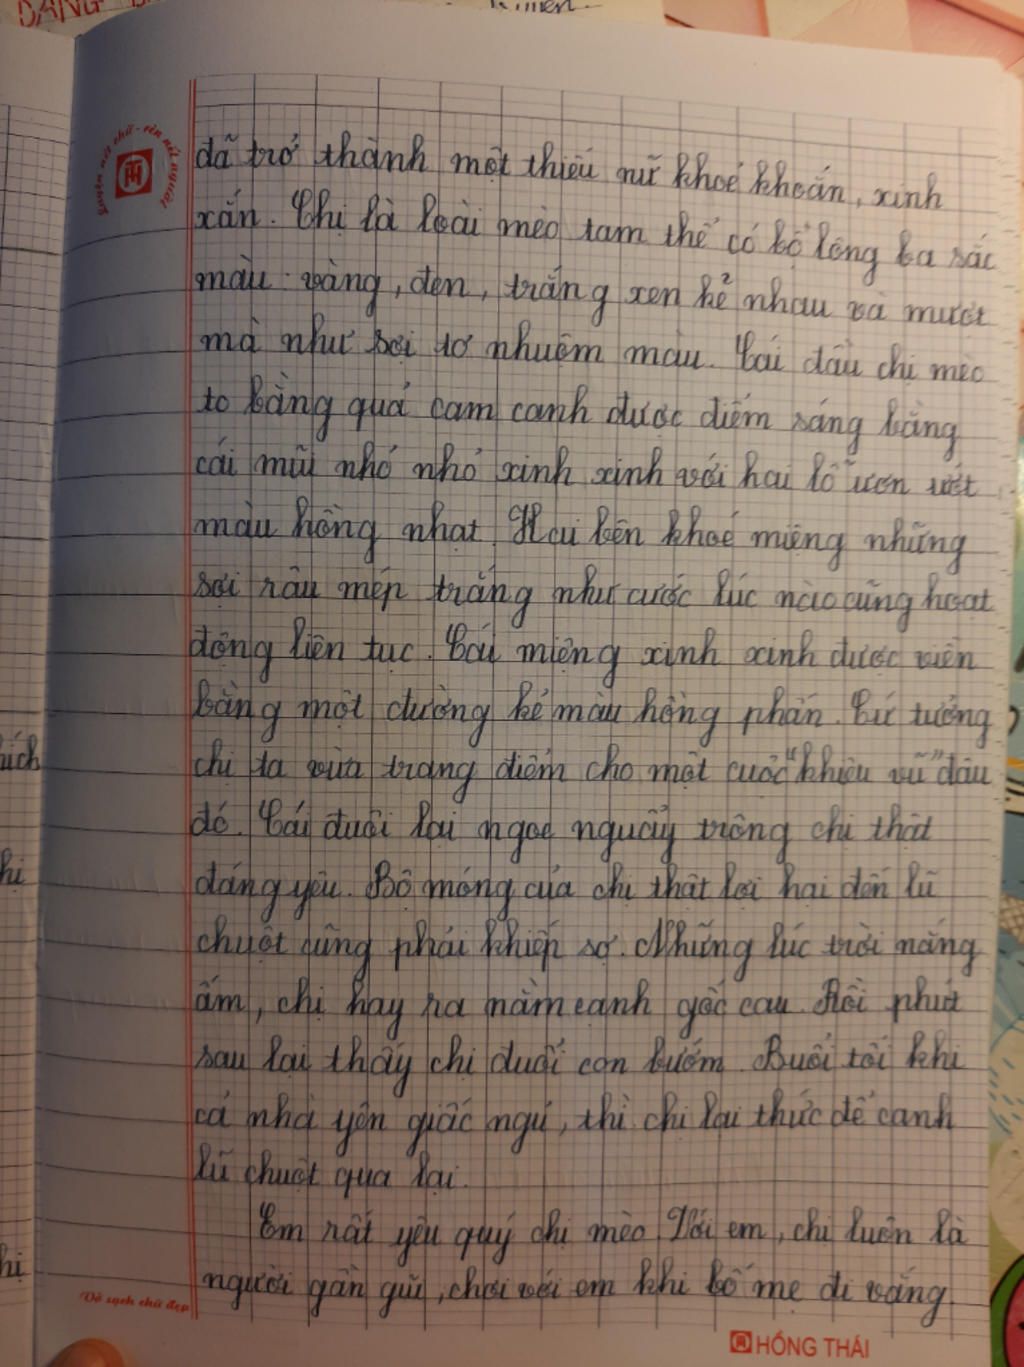 đã trở thành một thiếu nữ khoẻ khoắn, xinh
xắn. Chị là loài mèo tam thể có bộ lông ba sắc
màu: vàng, đen, trắng xen kẽ nhau và mượt
mà như sợi tơ nhuộm màu. Cái đầu chị mèo
to bằng quả cam canh được điểm sáng bằng
cái mũi nhỏ nhỏ xinh xinh với hai lỗ ươn ướt
màu hồng nhạt. Hai bên khoé miệng những
sợi râu mép trắng như cước lúc nào cũng hoạt
động liên tục. Cái miệng xinh xinh được viền
bằng một đường kẻ màu hồng phấn. Cứ tưởng
chị ta vừa trang điểm cho một cuộc "khiêu vũ" đâu
đó. Cái đuôi lại ngoe nguẩy trông chị thật
đáng yêu. Bộ móng của chị thật lợi hại đến lũ
chuột cũng phải khiếp sợ. Những lúc trời nắng
ấm, chị hay ra nằm cạnh gốc cau. Rồi phút
sau lại thấy chị đuổi con bướm. Buổi tối khi
cả nhà yên giấc ngủ, thì chị lại thức để canh
lũ chuột qua lại.
Em rất yêu quý chị mèo. Với em, chị luôn là
người gần gũi, chơi với em khi bố mẹ đi vắng.
Luyện nét chữ - rèn nết người
Vở sạch chữ đẹp
HỒNG THÁI
ĐẢNG
ích
hị
hị